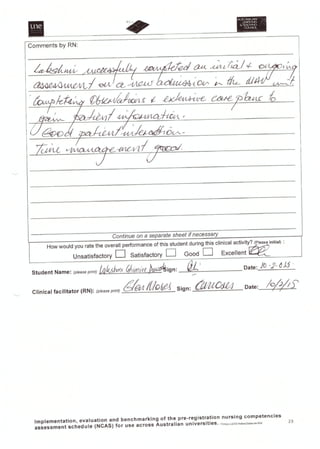 une
Comments by RN:
Lakshmi successfully completed an initial & ongoing
assessment on a new admission in the unit
Completing Observations & extensive care plans to
gain patient information.
Good patient interaction.
Time management good
Continue on a separate sheet if necessary
How would you rate the overall performance of this student during this clinical activity? (Please initial) :
Unsatisfactory Satisfactory Good Excellent
Student Name: (please print) Lakshmi Sign: Date:
Clinical facilitator (RN): (please print) Glen Moses Sign: Date: 10/2/15
Implementation, evaluation and benchmarking of the pre-registration nursing competencies
assessment schedule (NCAS) for use across Australian universities.